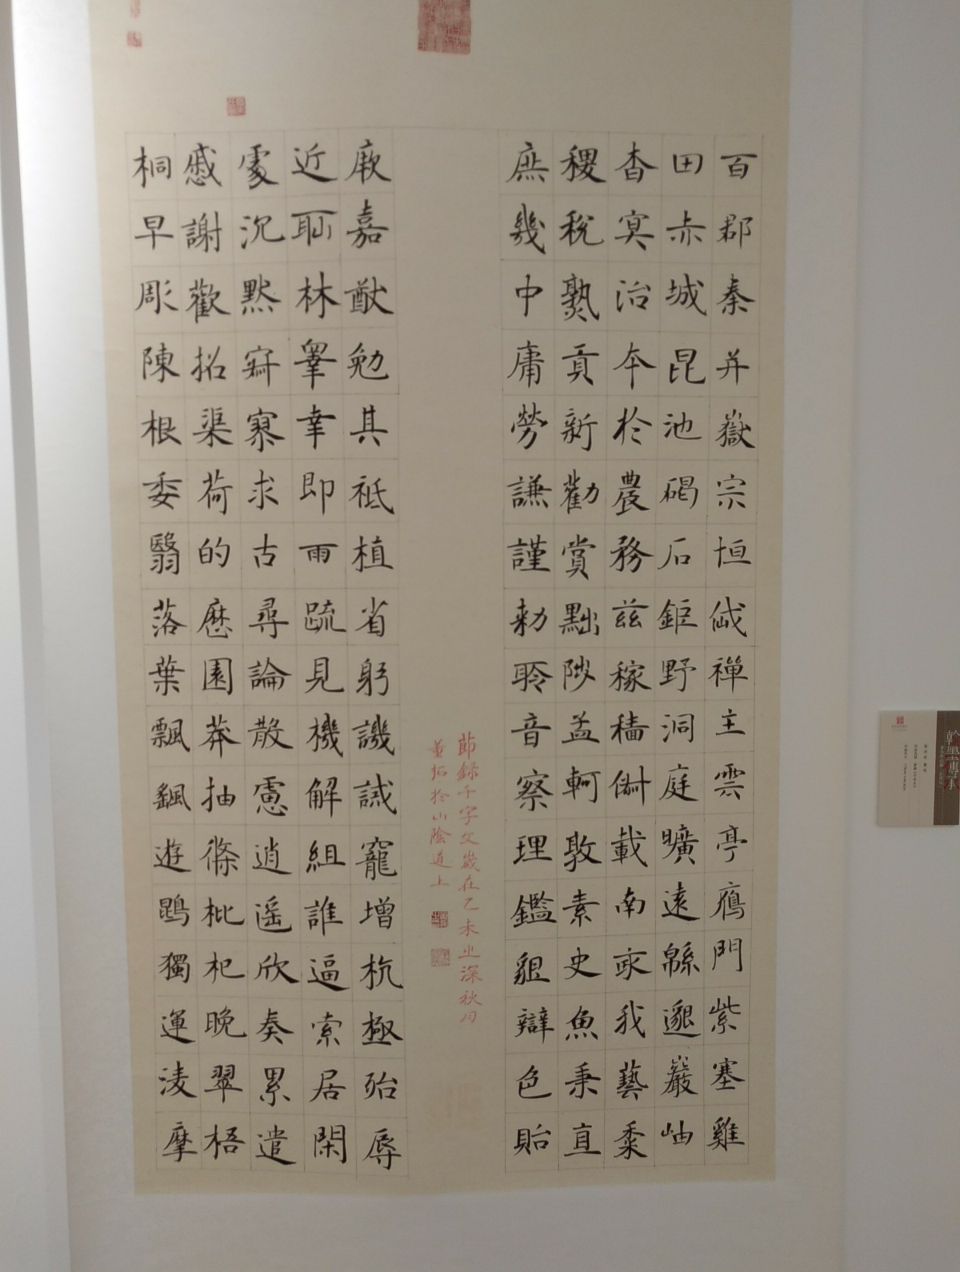 百郡秦并嶽宗恒岱禪主雲亭鴈門紫塞雞
田赤城昆池碣石鉅野洞庭曠遠緜邈巖岫
杳冥治本於農務茲稼穡俶載南畝我藝黍
稷稅熟貢新勸賞黜陟孟軻敦素史魚秉直
庶幾中庸勞謙謹勅聆音察理鑑貌辯色貽
厥嘉猷勉其祗植省躬譏誡寵增抗極殆辱
近恥林睾幸即兩疏見機解組誰逼索居閑
處沉默寂寥求古尋論散慮逍遥欣奏累遣
慼謝歡招渠荷的歷園莽抽條枇杷晚翠梧
桐早彫陳根委翳落葉飄颻遊鵾獨運凌摩
節録千字文歲在乙未之深秋月
董拓於山陰道上
翰墨傳承